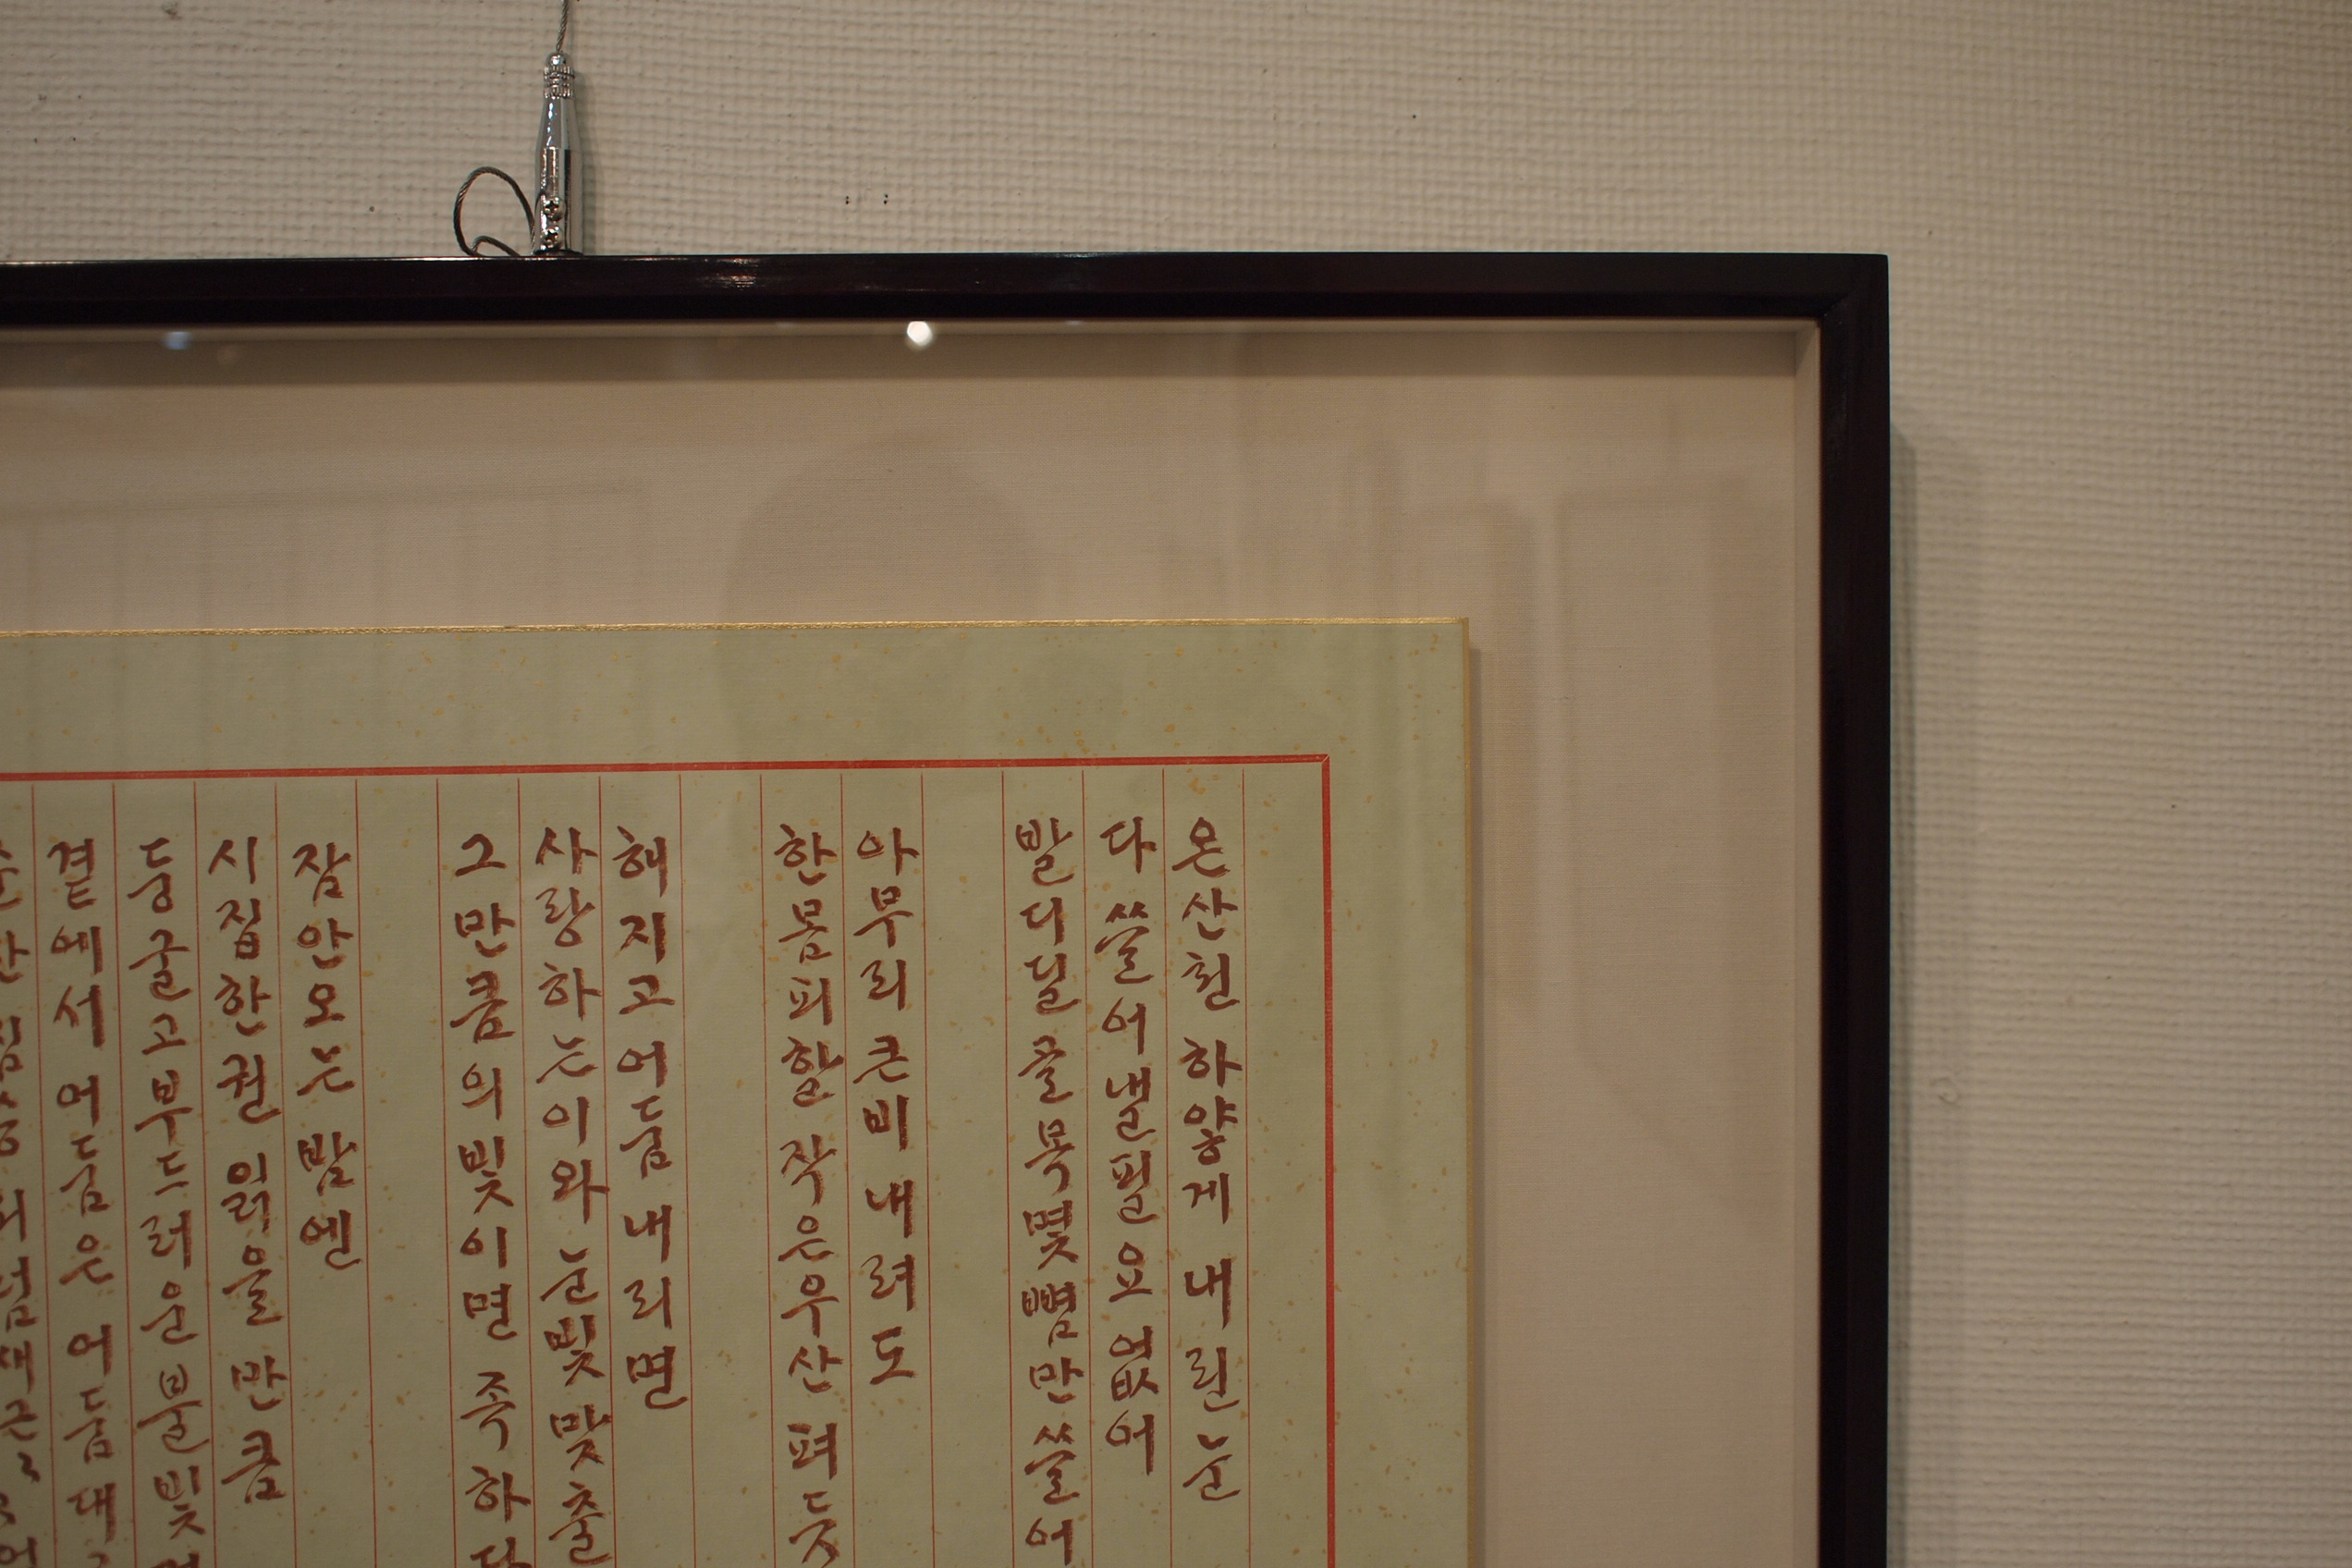 온 산천 하얗게 내린 눈
다 쓸어낼 필요 없어
발 디딜 골목 몇 뼘만 쓸어
아무리 큰 비 내려도
한 몸 피할 작은 우산 펴듯
해지고 어둠 내리면
사랑하는 이와 눈빛 맞출
그만큼의 빛이면 족하다
잠 안 오는 밤엔
시집 한 권 읽을 만큼
둥글고 부드러운 불빛
곁에서 어둠은 어둠대